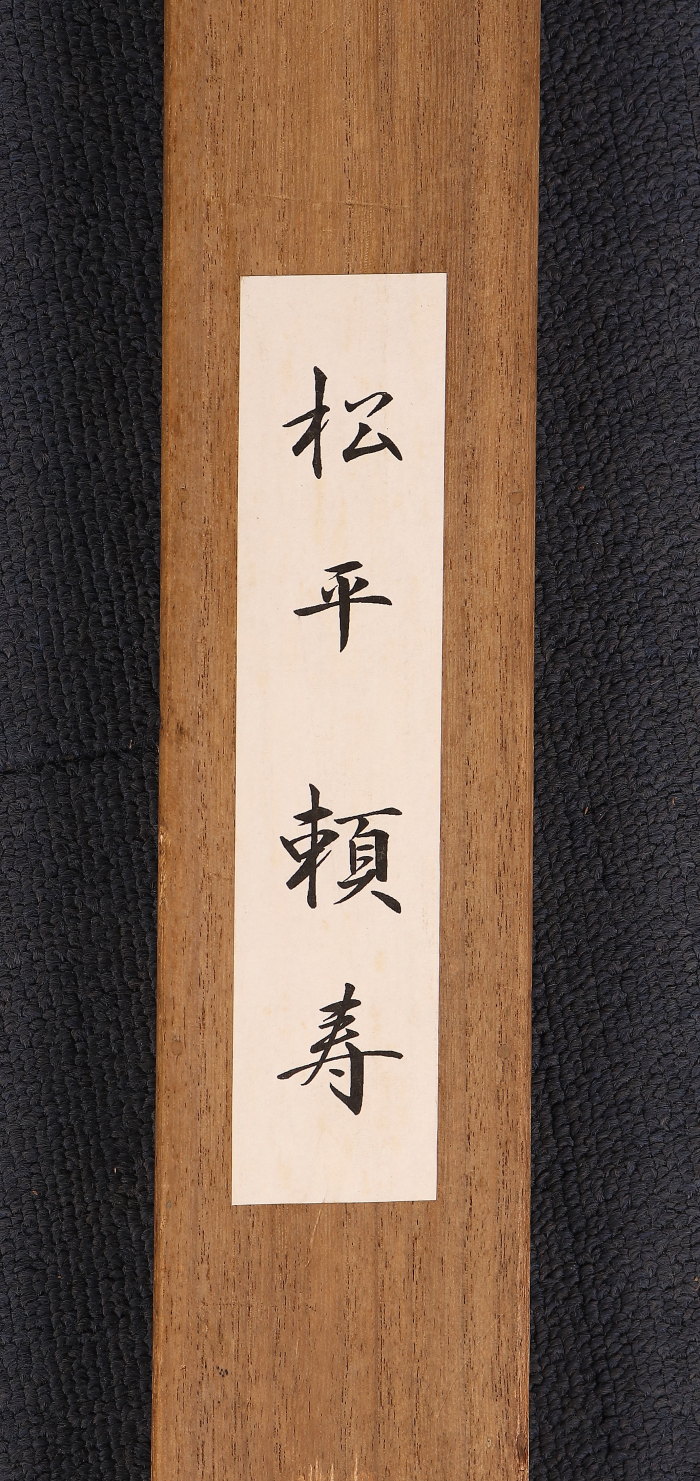 松平頼寿